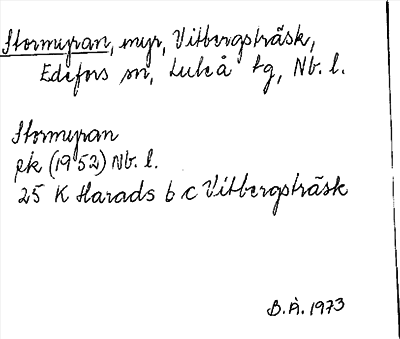 Stormyran, myr, Vitbergsträsk,
Edefors sn, Luleå tg, Nb. l.
Stormyran
ek (1952) Nb. l.
25 K Harads b c Vitbergsträsk
B.Å. 1973